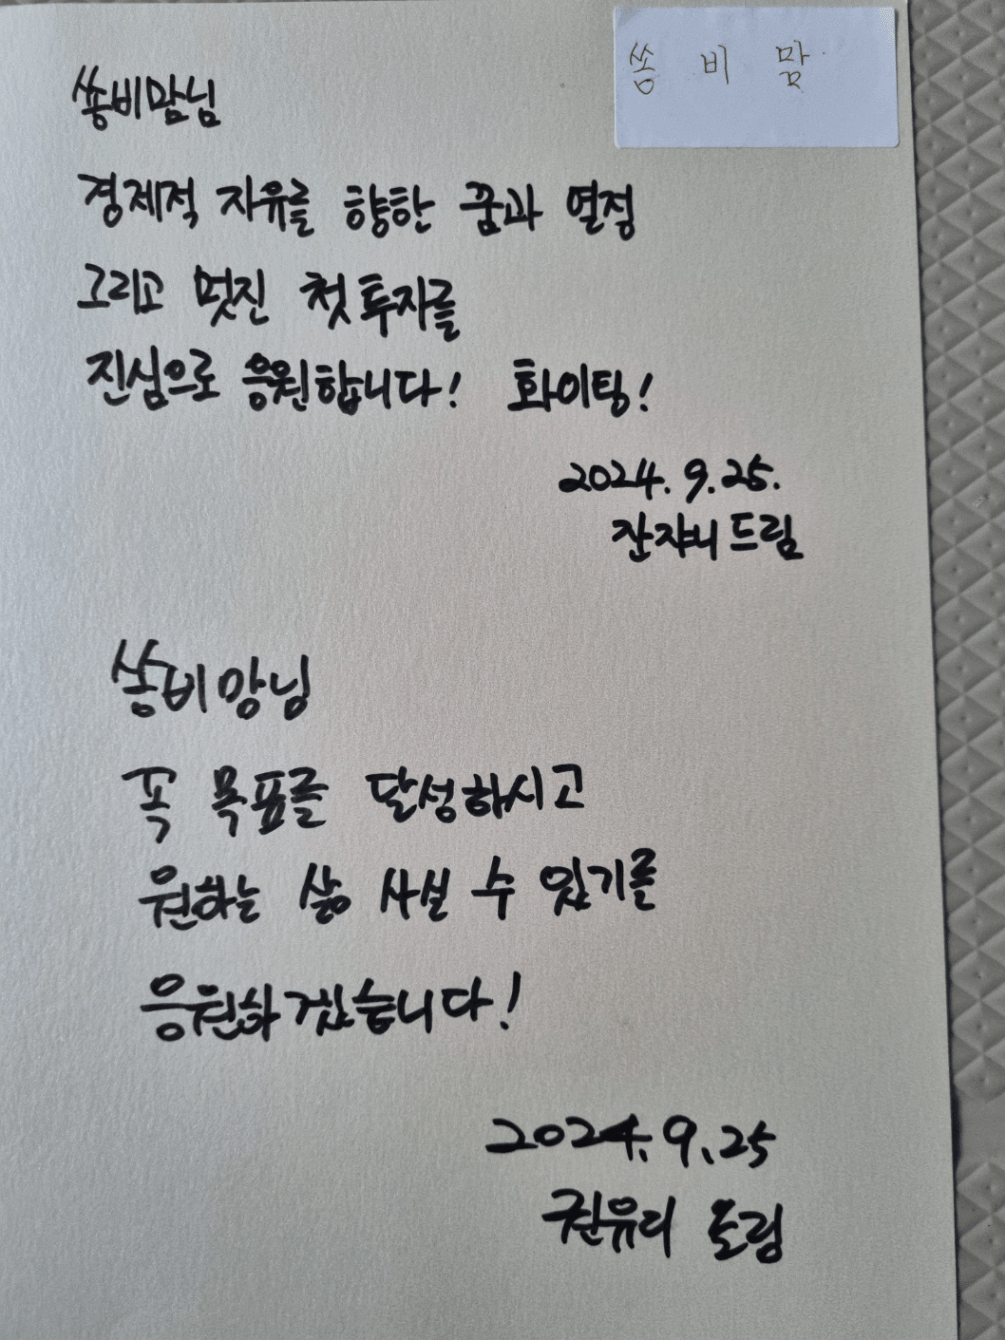 쏭비맘
쏭비맘님
경제적 자유를 향한 꿈과 열정
그리고 멋진 첫 투자를
진심으로 응원합니다! 화이팅!
2024. 9. 25.
잔쟈니 드림
쏭비맘님
꼭 목표를 달성하시고
원하는 삶 사실 수 있기를
응원하겠습니다!
2024. 9. 25
권유리 드림